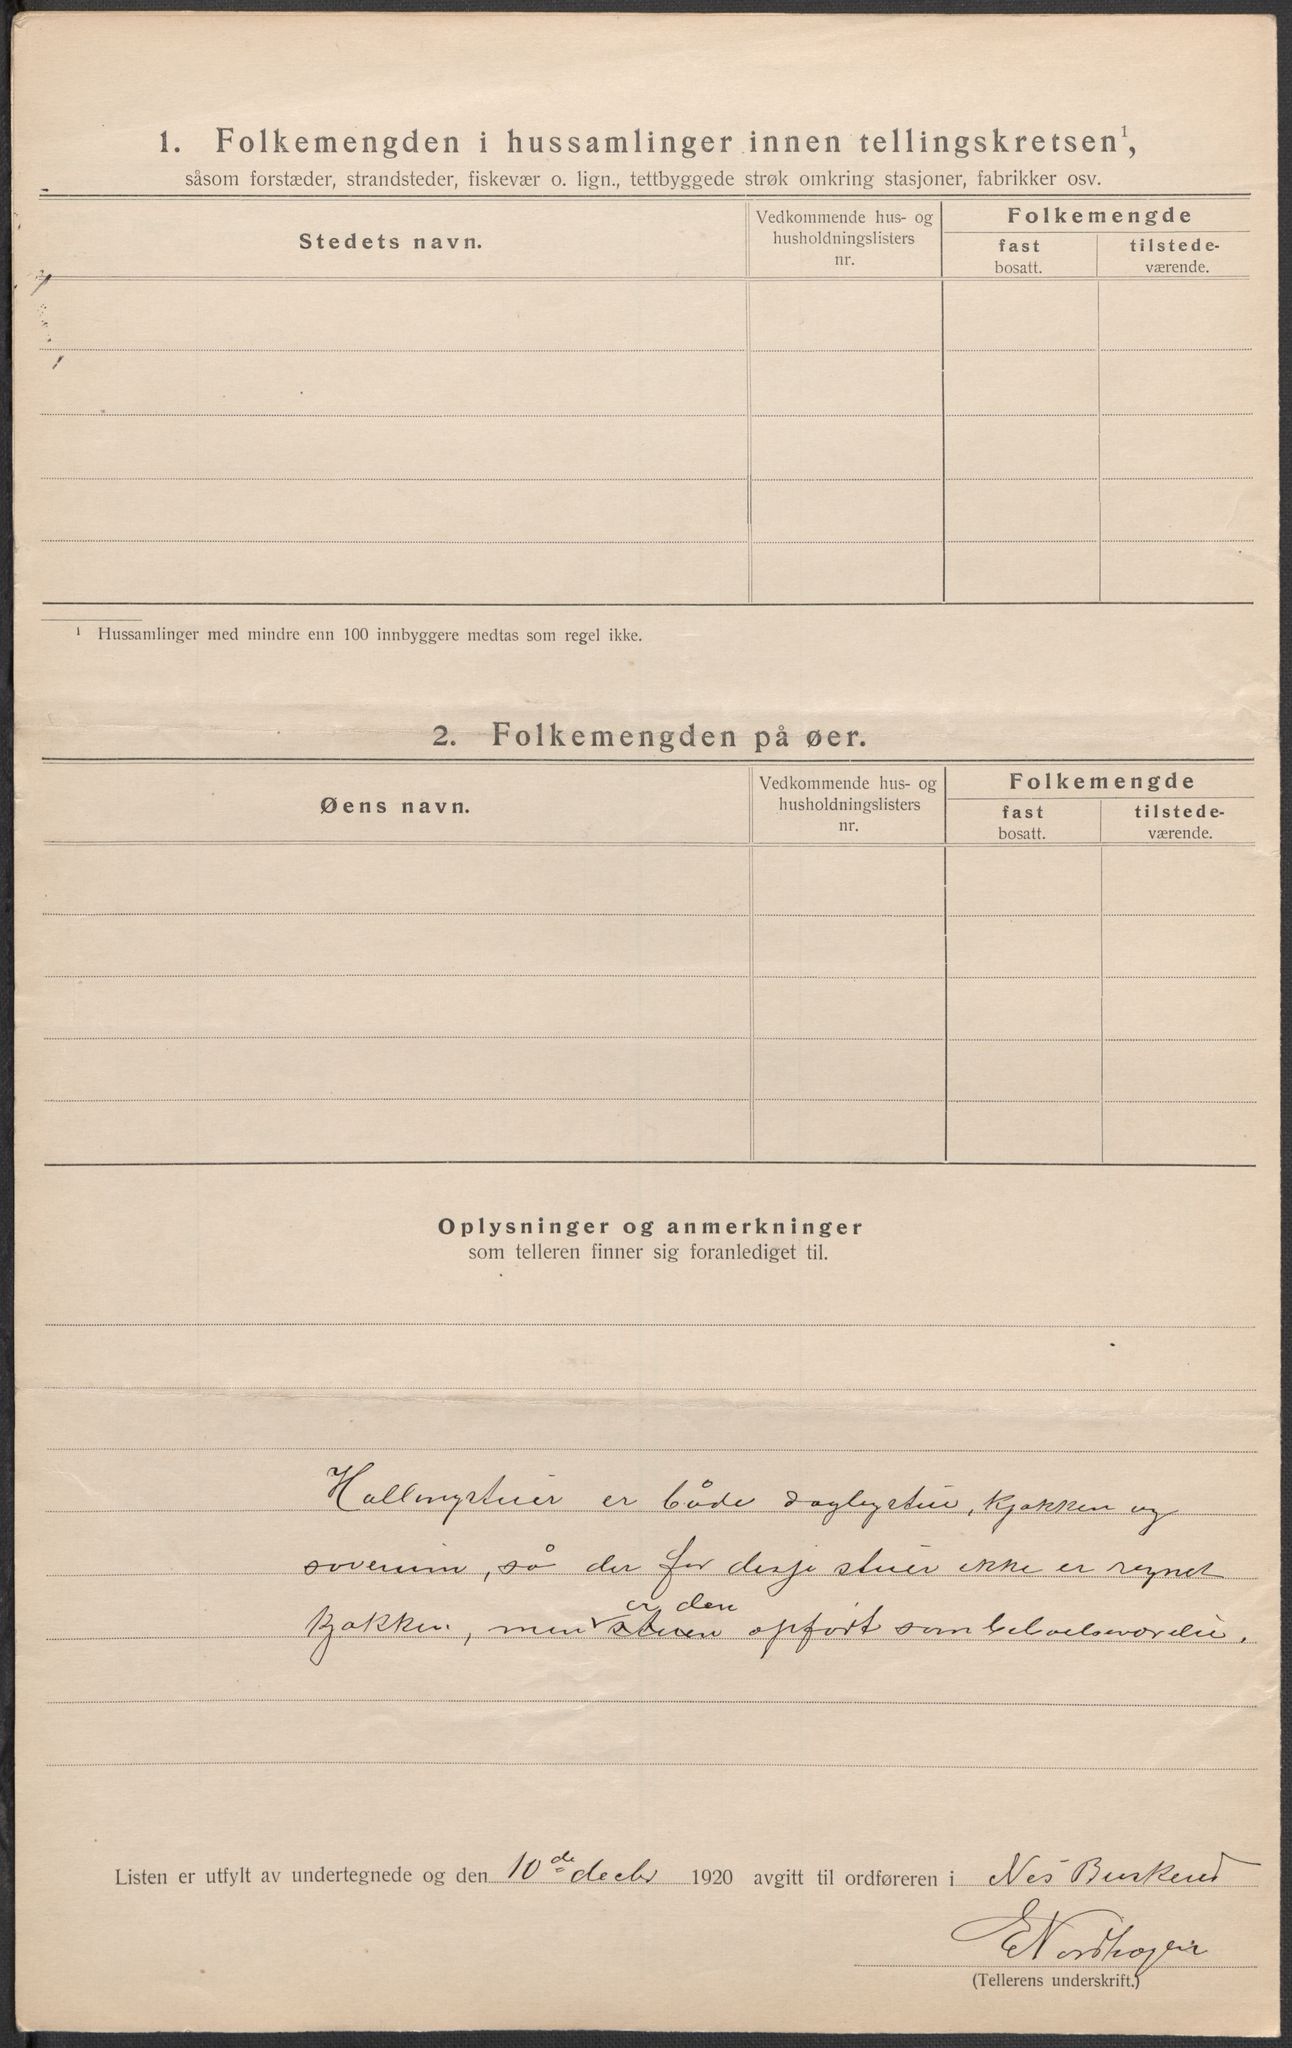 1. Folkemengden i hussamlinger innen tellingskretsen¹,
såsom forstæder, strandsteder, fiskevær o. lign., tettbyggede strøk omkring stasjoner, fabrikker osv.
Stedets navn.
Vedkommende hus- og
husholdningslisters
nr.
Folkemengde
fast
bosatt.
tilstede-
værende.
¹ Hussamlinger med mindre enn 100 innbyggere medtas som regel ikke.
2. Folkemengden på øer.
Øens navn.
Vedkommende hus- og
husholdningslisters
nr.
Folkemengde
fast
bosatt.
tilstede-
værende.
Oplysninger og anmerkninger
som telleren finner sig foranlediget til.
Hallingstuer er både dagligstue, kjøkken og
soverum, så der for disse stuer ikke er regnet
er den
kjøkken, men stuen opført som beboelsesværelse.
Listen er utfylt av undertegnede og den 10de decbr 1920 avgitt til ordføreren i Nes Buskerud
E Nordhagen
(Tellerens underskrift.)